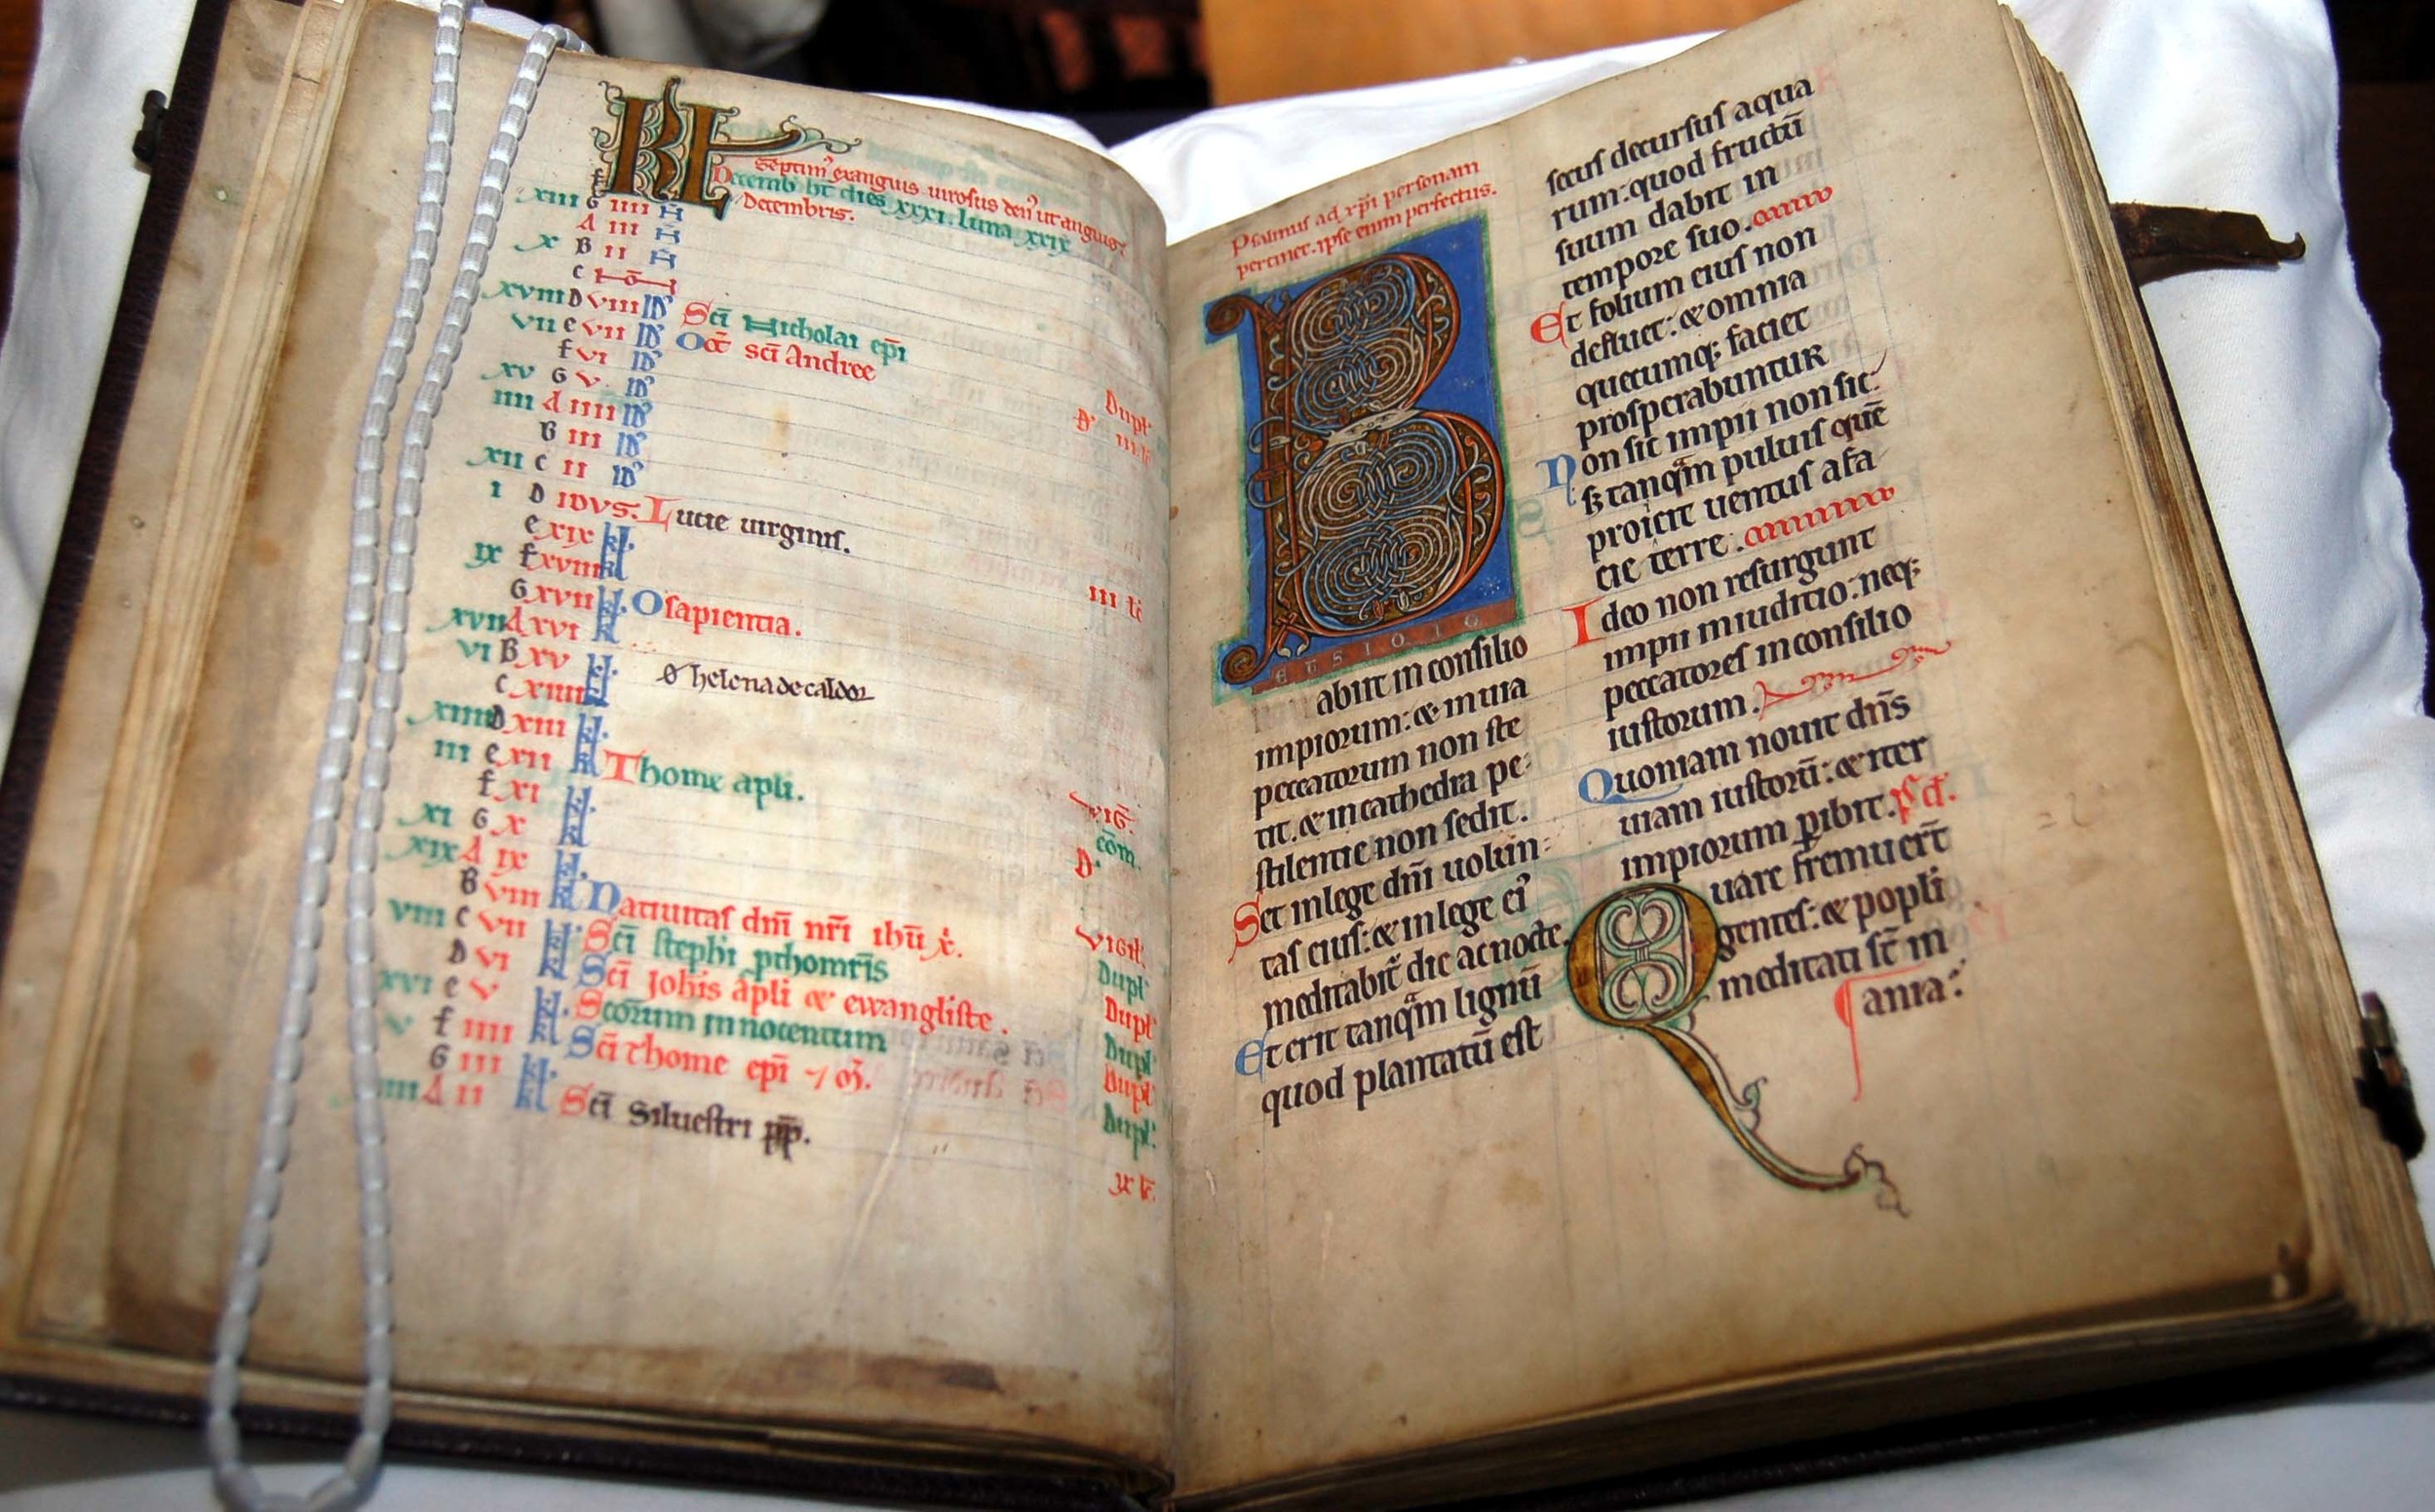 KL
Septim' exanguis uirosus den' ut anguis.
Decemb ht dies xxxi. luna xxix
Decembris.
f
xiii G iiii N
A iii N
x B ii N
c NO
xviii D viii ID Sci Nicholai epi
vii e vii ID Oct sci Andree
f vi ID
xv G v ID Dupl'
iiii A iiii ID D' iii lc
B iii ID
xii c ii ID
i D IDVS. Lucie uirginis.
e xix kl.
ix f xviii kl iii lc
G xvii kl. O sapientia.
xvii A xvi kl
vi B xv kl. helena de caldor
c xiiii kl
xiiii D xiii kl.
iii e xii kl Thome apli.
f xi kl. vig.
xi G x kl com.
xix A ix kl. D'
B viii kl Natiuitas dni nri ihu x.
viii c vii kl. Sci stephi pthomris Vigil.
D vi kl Sci Johis apli & ewangliste. Dupl'
xvi e v kl. Scorum innocentum Dupl'
v f iiii kl Sci thome epi 7 m. Dupl'
G iii kl. Dupl'
iiii A ii kl Sci Siluestri pp. Dupl'
ix lc.
Psalmus ad xpi personam
pertinet. ipse enim perfectus.
B
abiit in consilio
impiorum: & in uia
peccatorum non ste
tit. & in cathedra pe-
stilentie non sedit.
Set in lege dni uolun-
tas eius: & in lege ei'
meditabit die ac nocte.
Et erit tanqam lignu
quod plantatu est
secus decursus aqua
rum: quod fructu
suum dabit in
tempore suo.
Et folium eius non
defluet: & omnia
quecumq; faciet
prosperabuntur
Non sic impii non sic:
sz tanqam puluis que
proicit uentus a fa
cie terre.
Ideo non resurgunt
impii in iudicio: neq;
peccatores in consilio
iustorum.
Quoniam nouit dns
uiam iustoru: & iter
impiorum pibit. ps d.
Quare fremuert
gentes: & popli
meditati st in
ania: